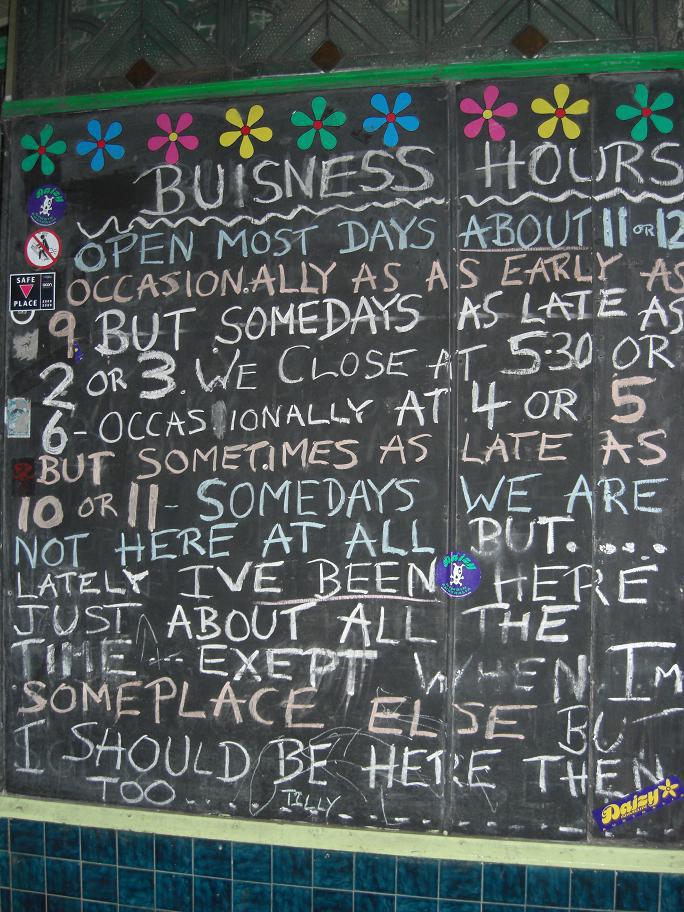 BUISNESS HOURS
OPEN MOST DAYS ABOUT 11 OR 12
OCCASION.ALLY AS AS EARLY AS
9 BUT SOMEDAYS AS LATE AS
2 OR 3. WE CLOSE AT 5:30 OR
6 - OCCASIONALLY AT 4 OR 5
BUT SOMETIMES AS LATE AS
10 OR 11 - SOMEDAYS WE ARE
NOT HERE AT ALL BUT.....
LATELY I'VE BEEN HERE
JUST ABOUT ALL THE
TIME -- EXEPT WHEN IM
SOMEPLACE ELSE BUT
I SHOULD BE HERE THEN
TOO ....
TILLY
Daizy
SAFE
PLACE
Daizy
Daizy